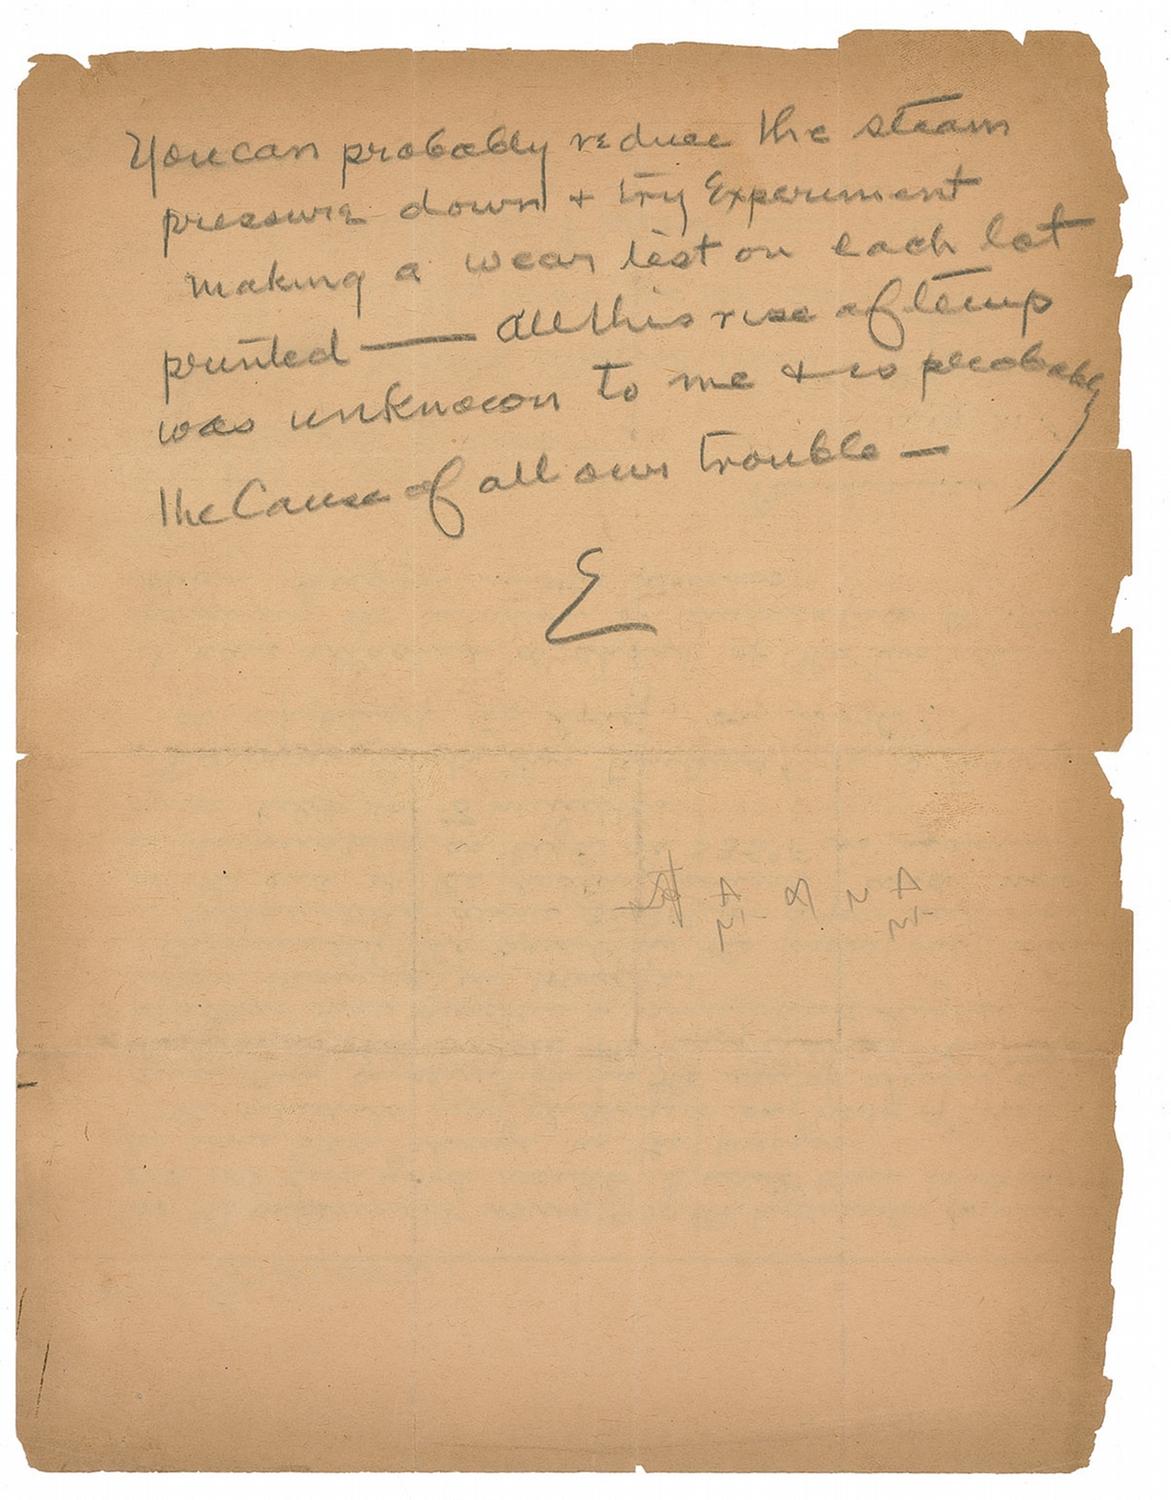 You can probably reduce the steam
pressure down + try Experiment
making a wear test on each lot
printed — all this rise of temp
was unknown to me & is probably
the Cause of all our trouble —
E
A A N A